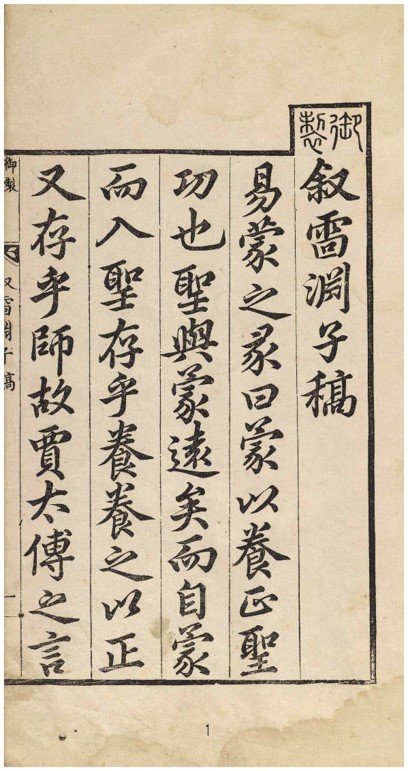 御製
叙雷淵子稿
易蒙之彖曰蒙以養正聖
功也聖與蒙遠矣而自蒙
而入聖存乎養養之以正
又存乎師故賈太傅之言
御製
叙雷淵子稿
一
1